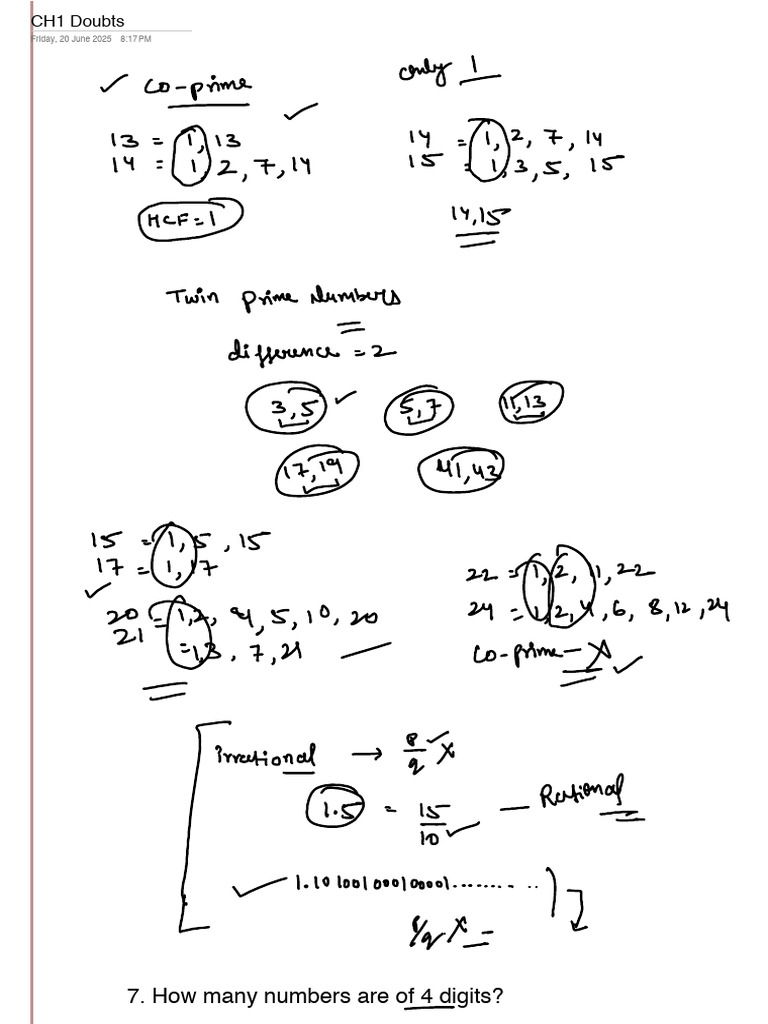 CH1 Doubts
Friday, 20 June 2025 8:17 PM
✓ Co-prime
only 1
13 = 1, 13 ✓
14 = 1, 2, 7, 14
HCF = 1
14 = 1, 2, 7, 14
15 = 1, 3, 5, 15
14, 15
Twin prime Numbers
difference = 2
3, 5 ✓ 5, 7 11, 13
17, 19 41, 43
15 = 1, 5, 15
17 = 1, 17
✓
20 = 1, 2, 4, 5, 10, 20
21 = 1, 3, 7, 21
22 = 1, 2, 11, 22
24 = 1, 2, 4, 6, 8, 12, 24
Co-prime - X ✓
Irrational → p/q ✓ X
1.5 = 15/10 ✓ — Rational
✓ 1.101001000100001..........
p/q X =
7. How many numbers are of 4 digits?